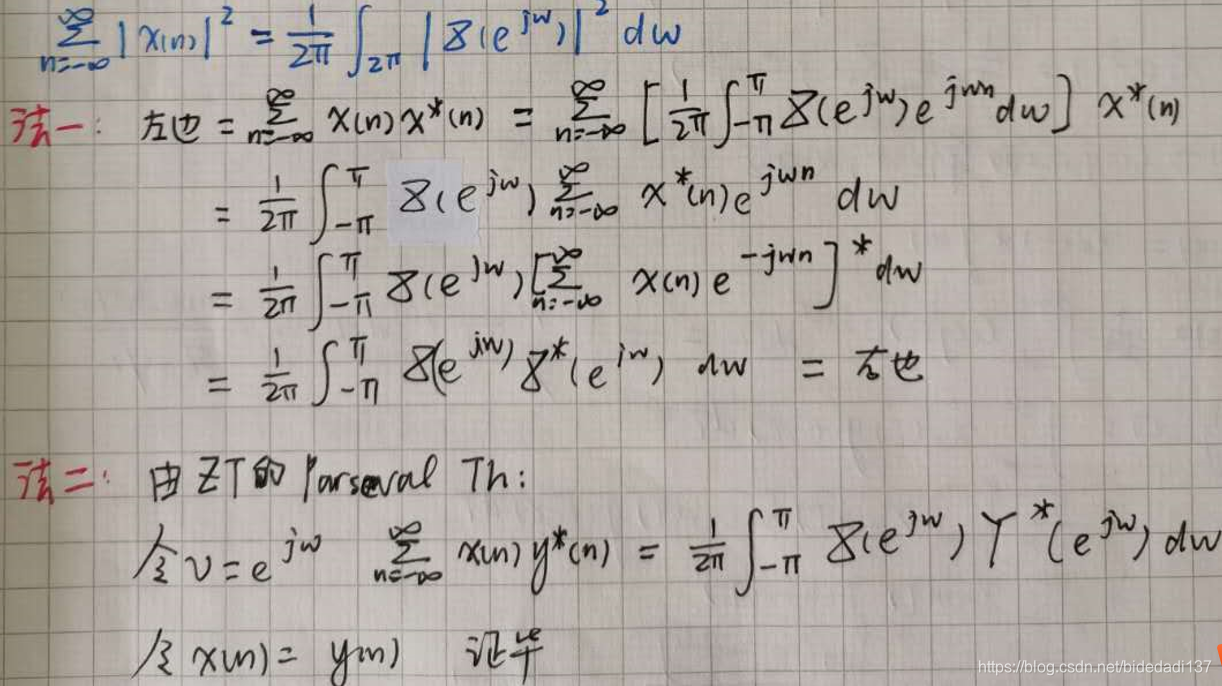 ∑_{n=-∞}^{∞} |x(n)|² = 1/2π ∫_{2π} |X(e^{jw})|² dw
法一: 左边 = ∑_{n=-∞}^{∞} x(n) x*(n) = ∑_{n=-∞}^{∞} [1/2π ∫_{-π}^{π} X(e^{jw}) e^{jwn} dw] x*(n)
= 1/2π ∫_{-π}^{π} X(e^{jw}) ∑_{n=-∞}^{∞} x*(n) e^{jwn} dw
= 1/2π ∫_{-π}^{π} X(e^{jw}) [∑_{n=-∞}^{∞} x(n) e^{-jwn}]* dw
= 1/2π ∫_{-π}^{π} X(e^{jw}) X*(e^{jw}) dw = 右边
法二: 由ZT的 Parseval Th:
令 v = e^{jw} ∑_{n=-∞}^{∞} x(n) y*(n) = 1/2π ∫_{-π}^{π} X(e^{jw}) Y*(e^{jw}) dw
令 x(n) = y(n) 证毕
https://blog.csdn.net/bidedadi137